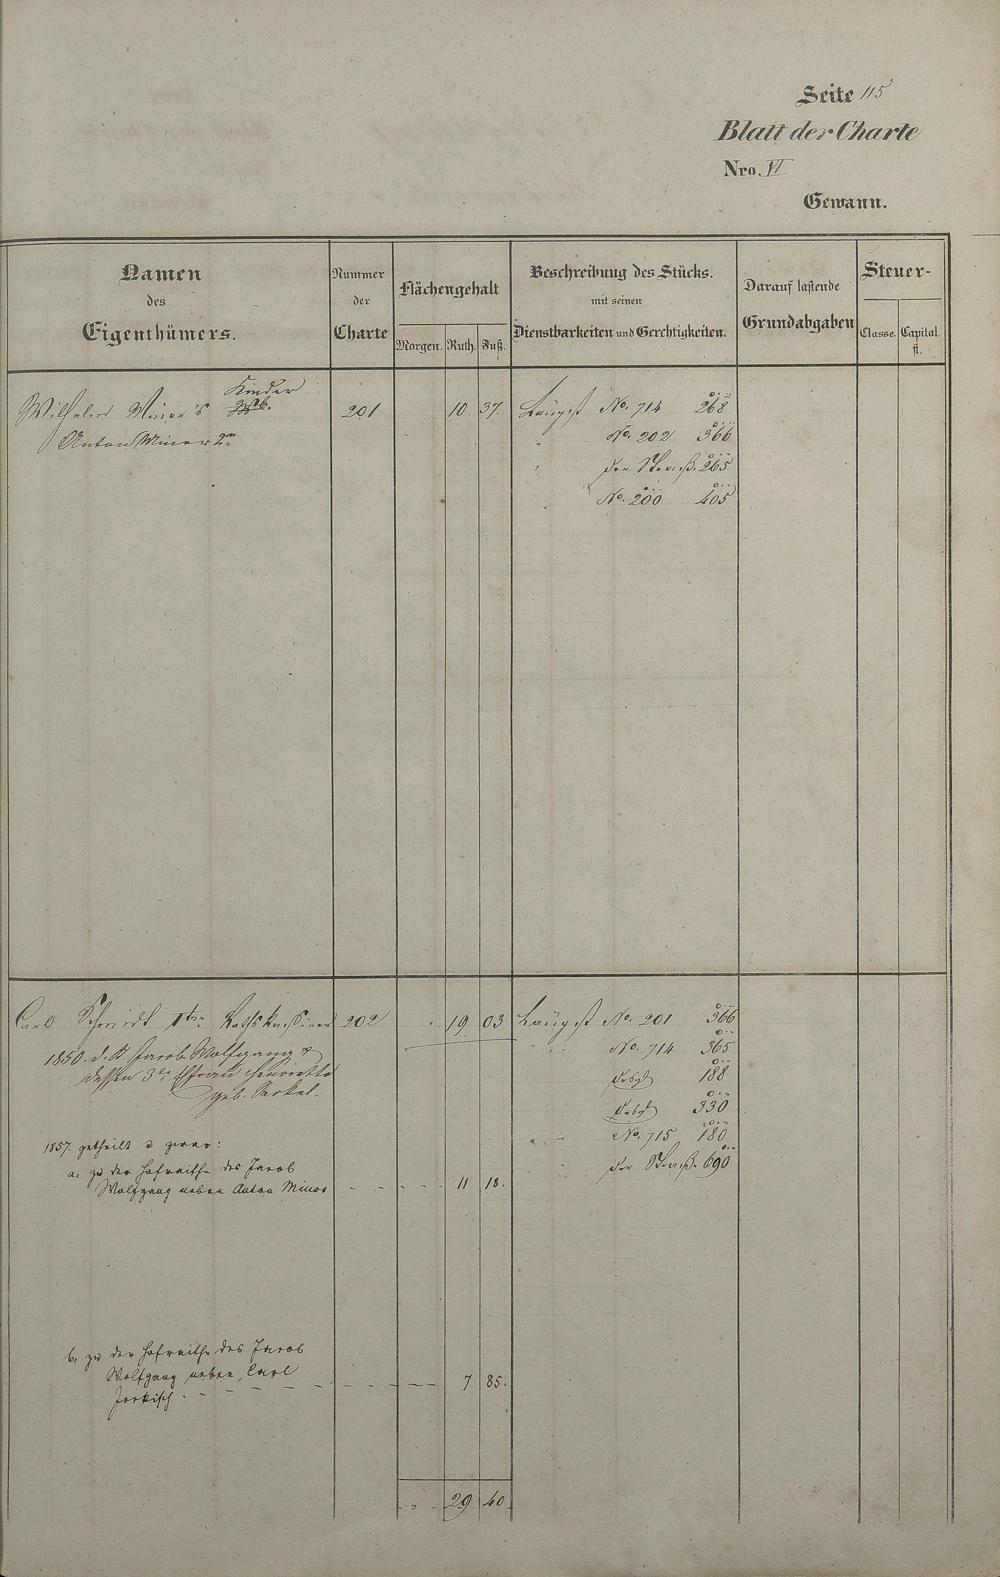 Seite 115
Blatt der Charte
Nro. VI
Gewann.
Namen
des
Eigenthümers.
Nummer
der
Charte
Flächengehalt
Morgen. Ruth. Fuß.
Beschreibung des Stücks.
mit seinen
Dienstbarkeiten und Gerechtigkeiten.
Darauf lastende
Grundabgaben
Steuer-
Classe. Capital.
fl.
Kinder
Wilhelm Minor's 201 10 37. Längst No. 714 268
Anton Minor 2r " No. 202 366
" der Straß. 265
No. 200 405
Carl Schmidt Iter 202 " 19 03 Längst No. 201 366
1850. d. d. Jacob Wolfgang & " " No. 714 365
dessen 3te Ehefrau Henriette 188
geb. 330
1857. getheilt u zwar: " " No. 715 180
a, zu der Hofraithe des Jacob der Straß. 690
Wolfgang neben Anton Minor 11 18.
b, zu der Hofraithe des Jacob
Wolfgang neben Carl 7 85.
" 29 40.